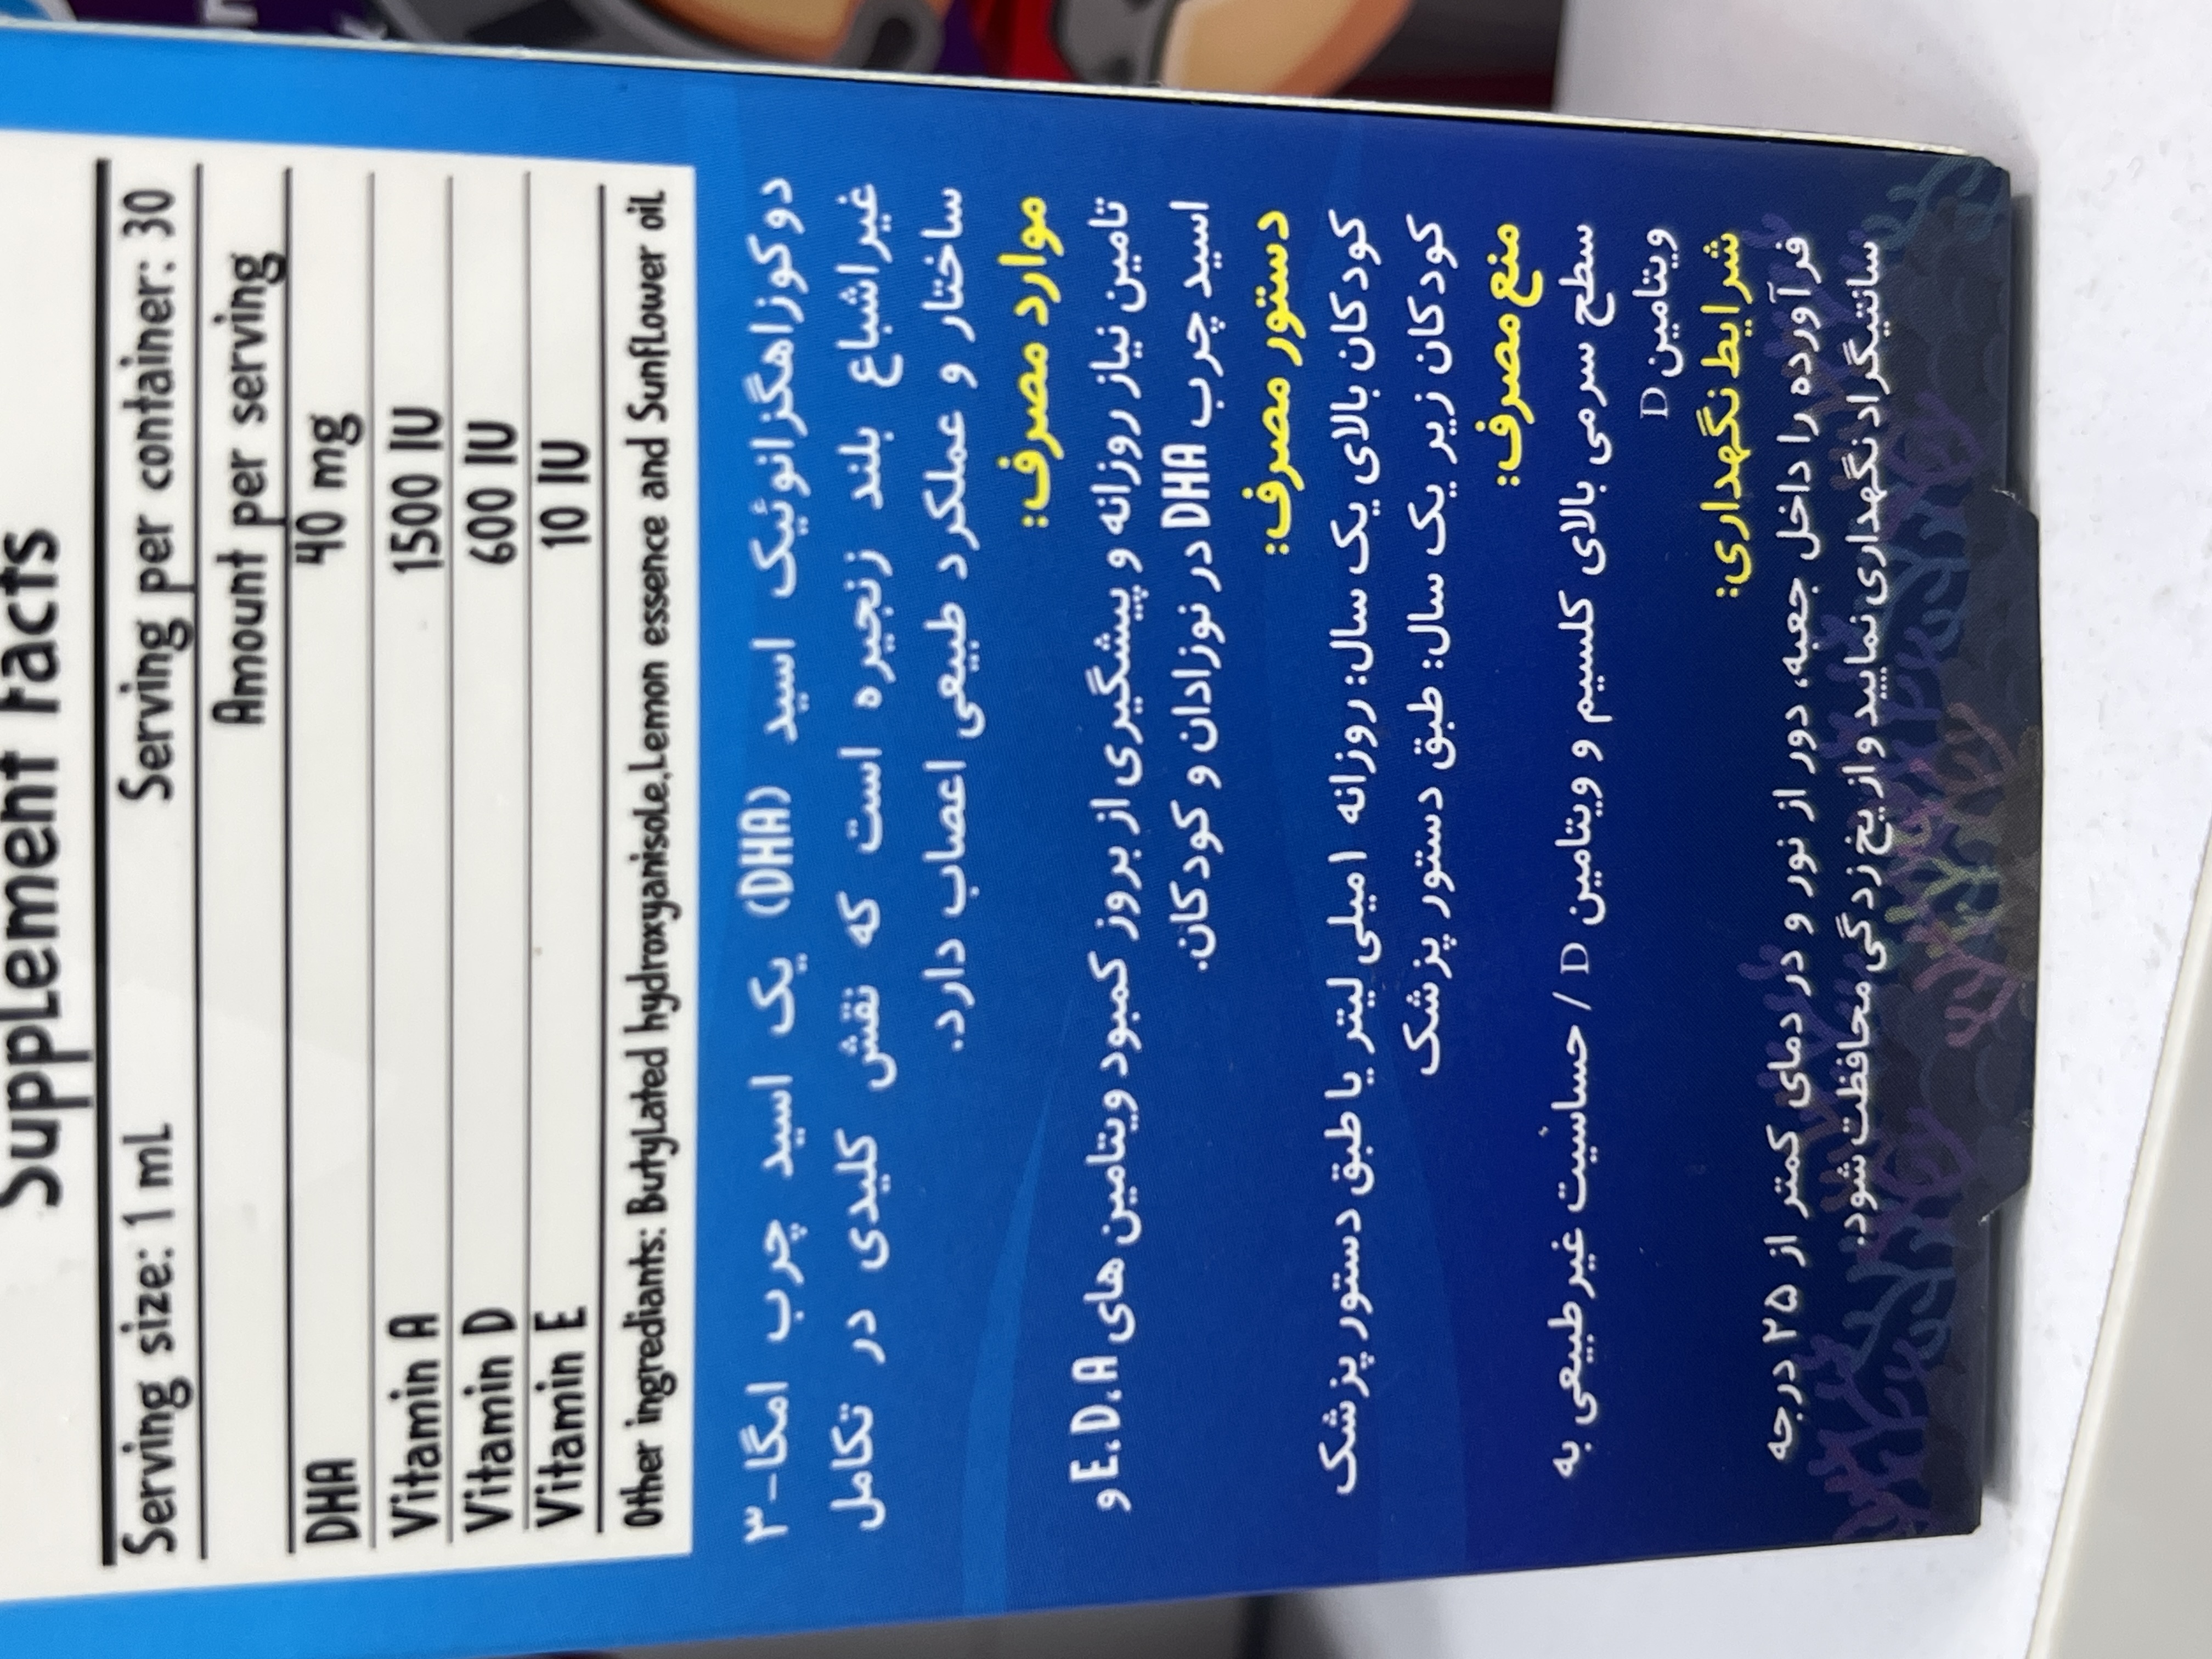 Supplement Facts
Serving size: 1 mL Serving per container: 30
Amount per serving
DHA 40 mg
Vitamin A 1500 IU
Vitamin D 600 IU
Vitamin E 10 IU
Other ingrediants: Butylated hydroxyanisole,Lemon essence and Sunflower oil
دوکوزاهگزانوئیک اسید (DHA) یک اسید چرب امگا-۳
غیراشباع بلند زنجیره است که نقش کلیدی در تکامل
ساختار و عملکرد طبیعی اعصاب دارد.
موارد مصرف:
تامین نیاز روزانه و پیشگیری از بروز کمبود ویتامین های E،D،A و
اسید چرب DHA در نوزادان و کودکان.
دستور مصرف:
کودکان بالای یک سال: روزانه ۱ میلی لیتر یا طبق دستور پزشک
کودکان زیر یک سال: طبق دستور پزشک
منع مصرف:
سطح سرمی بالای کلسیم و ویتامین D / حساسیت غیر طبیعی به
ویتامین D
شرایط نگهداری:
فرآورده را داخل جعبه، دور از نور و در دمای کمتر از ۲۵ درجه
سانتیگراد نگهداری نمایید و از یخ زدگی محافظت شود.